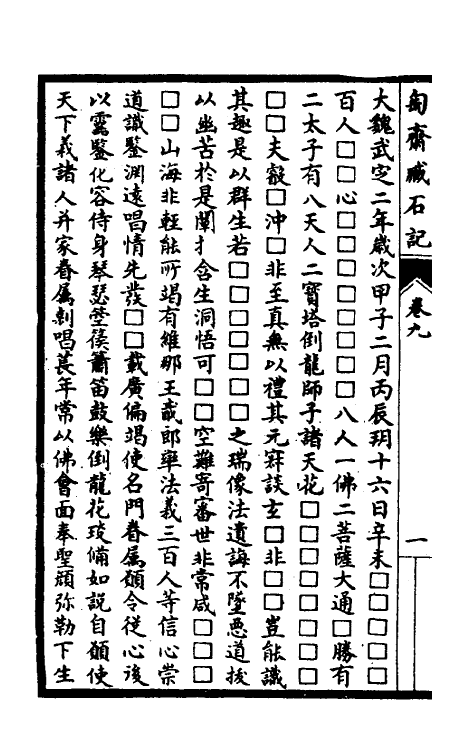 匋齋臧石記
卷九
一
大魏武定二年歲次甲子二月丙辰玥十六日辛未□□□□□
百人□□心□□□□□□□□□八人一佛二菩薩大通□勝有
二太子有八天人二寶塔倒龍師子諸天花□□□□□□□□
□□夫𡧯□沖□非至真無以禮其元寂談玄□非□□豈能識
其趣是以群生若□□□□□□□之瑞像法遺誨不墮惡道拔
以幽苦於是闡扌含生洞悟可□□□空難寄審世非常咸□□□
□□山海非輕能所竭有維那王貳郎舉法義三百人等信心崇
道識鑒淵遠唱情先發□□戴廣徧竭使名門眷属願令從心後
以靈鑒化容侍身琴瑟箜篌簫笛鼓樂倒龍花琰備如說自願使
天下義諸人并家眷属剌唱萇年常以佛會面奉聖顏弥勒下生